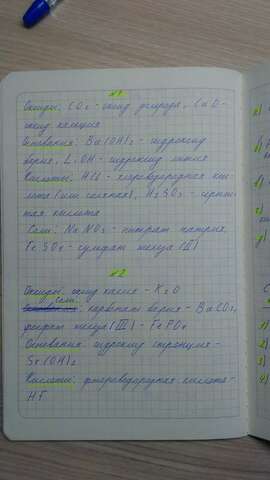 №1
Оксиды: CO₂ - оксид углерода, CaO -
оксид кальция
Основания: Ba(OH)₂ - гидроксид
бария, LiOH - гидроксид лития
Кислоты: HCl - хлороводородная кис-
лота (или соляная), H₂SO₃ - сернис-
тая кислота
Соли: NaNO₃ - нитрат натрия,
FeSO₄ - сульфат железа (II)
№2
Оксиды: оксид калия - K₂O
Соли: карбонат бария - BaCO₃,
фосфат железа (III) - FePO₄
Основания: гидроксид стронция -
Sr(OH)₂
Кислоты: фтороводородная кислота -
HF